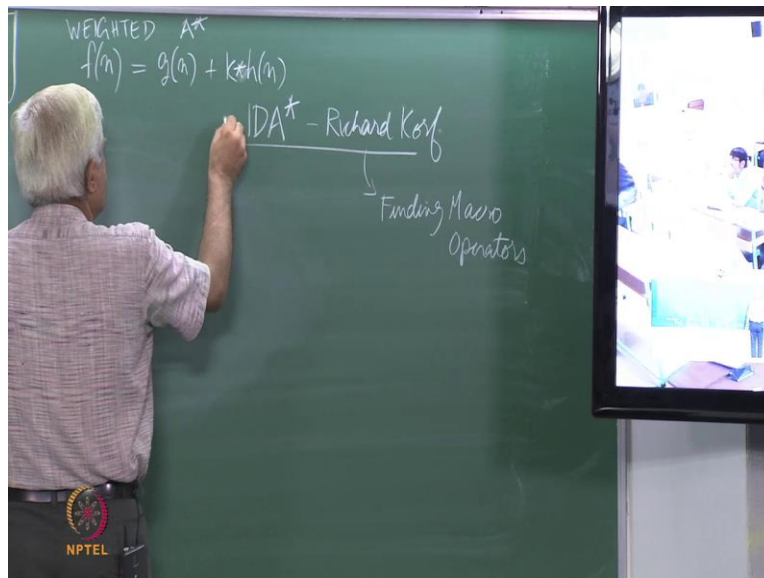 WEIGHTED A*
f(n) = g(n) + k*h(n)
IDA* - Richard Korf
Finding Macro
Operators
NPTEL